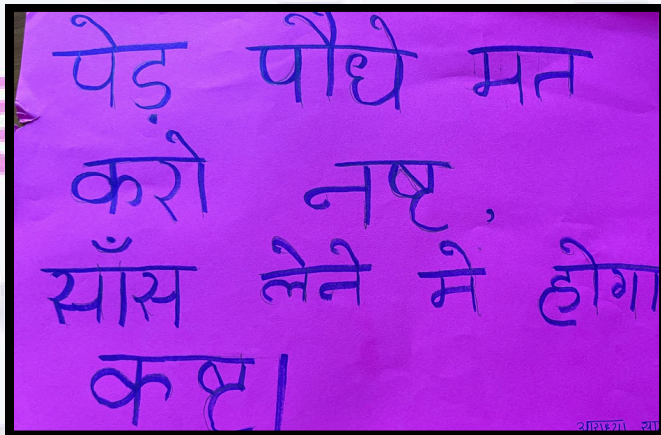 पेड़ पौधे मत
करो नष्ट,
साँस लेने मे होगा
कष्ट।
आराध्या